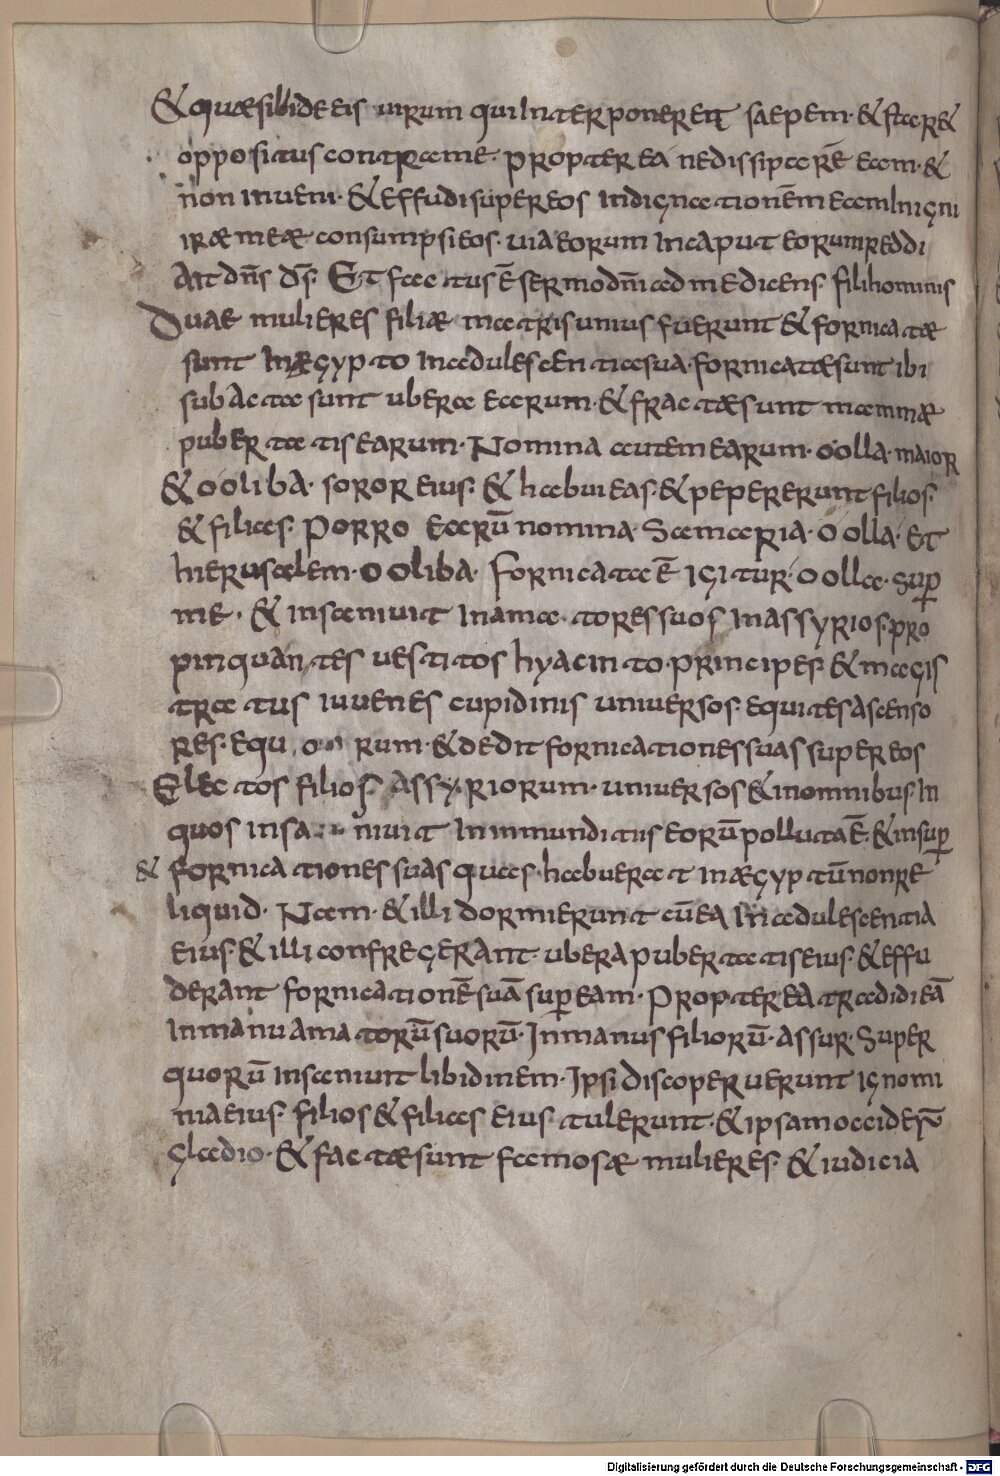 & quaesibi de eis uirum qui interponeret saepem · & starẽ&
oppositus contra me · propterea ne dissiparẽ eam · &
non inueni · & effudi super eos indignationẽm eam In igni
iræ meæ consumpsi eos · uia eorum In caput eorum reddi
Ait dñs ds̄ · Et factus ẽ sermo dñi ad me dicens · fili hominis
Duae mulieres filiæ matris unius fuerunt & fornicatæ
sunt In ægypto In adulescentia sua · fornicatæ sunt ibi
subactae sunt ubera earum · & fractæ sunt mammæ
pubertatis earum · Nomina autem earum · oolla · maior
& ooliba · soror eius · & habui eas · & pepererunt filios ·
& filias · Porro earũ nomina · Samaria · oolla · Et
hierusalem · ooliba · fornicata ẽ igitur · oolla · sup
me · & insaniuit In amatores suos In assyrios · pro
pinquantes uestitos hyacinto · principes · & magis
tratus iuuenes cupidinis uniuersos · equites ascenso
res · equorum · & dedit fornicationes suas super eos
Electos filios Assyriorum · uniuersos & in omnibus · In
quos insaniuit In inmunditiis eorũ polluta ẽ · & insup
& fornicationes suas quas · habuerat In ægyptũ non re
liquid · Nam · & illi dormierunt cũ ea In adulescentia
eius · & illi confregerant · ubera pubertatis eius · & effu
derant fornicationẽ suã sup eam · Propterea tradidi eã
In manu amatorũ suorũ · In manus filiorũ · assur · Super
quorũ insaniuit libidinem · Ipsi discoperuerunt ignomi
nia eius · filios & filias eius tulerunt · & ipsam occiderũ
gladio · & factæ sunt famosæ mulieres · & iudicia
Digitalisierung gefördert durch die Deutsche Forschungsgemeinschaft - DFG